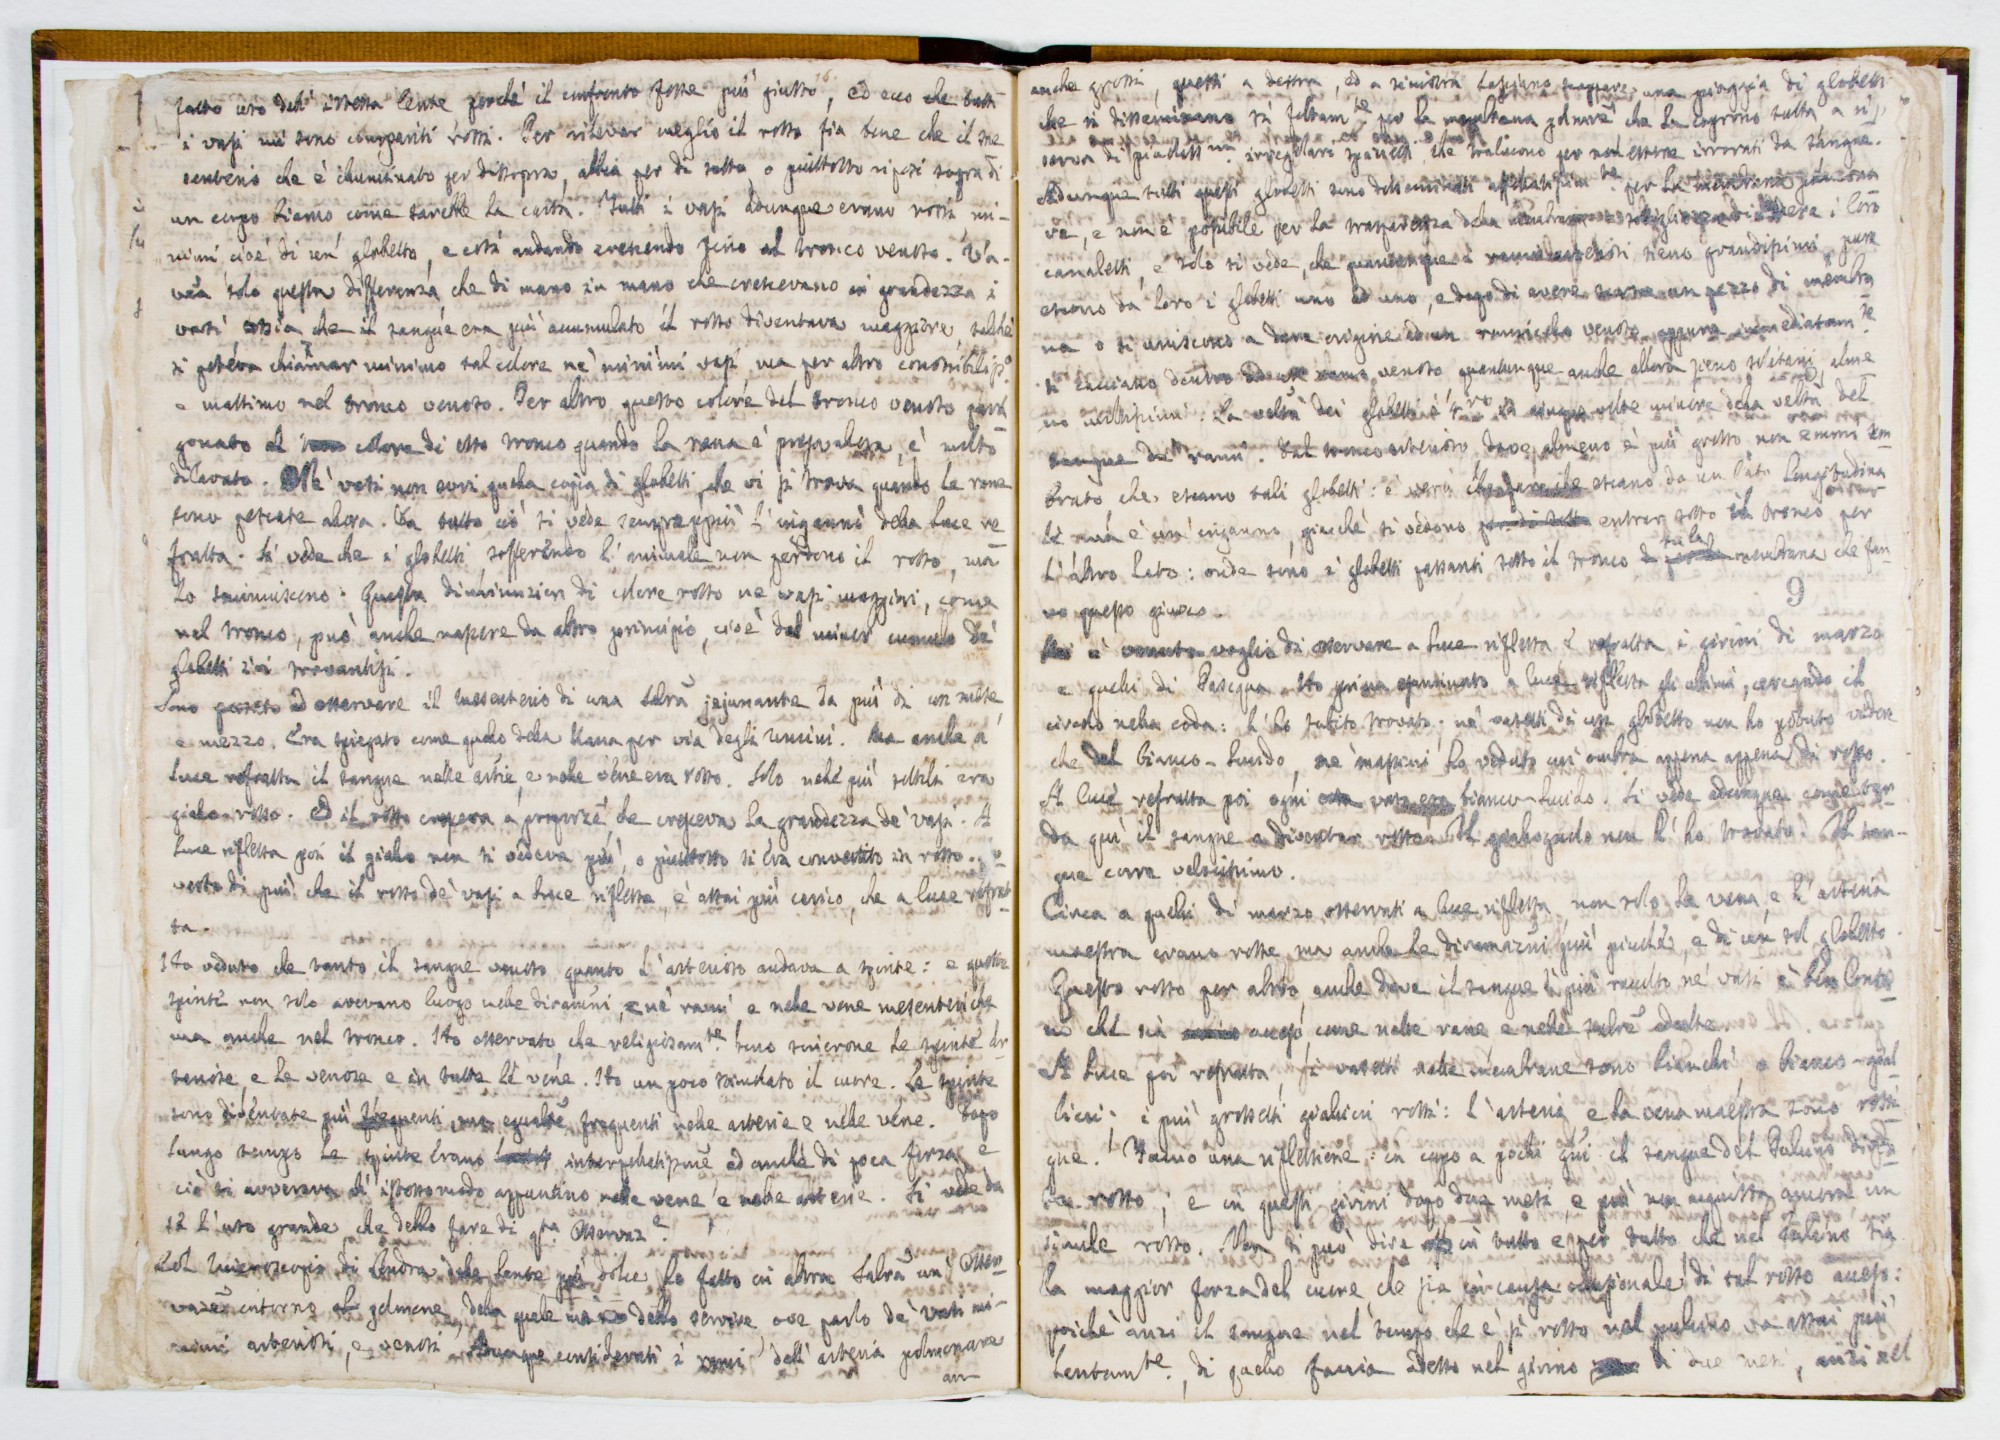 fatto ciò dell' istessa lente perchè il confronto fosse più giusto, ed ecco che tutti
i vasi mi sono compariti rossi. Per rilevar meglio il rosso fia bene che il me
senterio che è illuminato per dissopra, abbia per di sotto o piuttosto riposi sopra di
un corpo bianco come sarebbe la carta. Tutti i vasi adunque erano rossi mi-
nimi cioè di un globetto, e così andando crescendo fino al tronco venoso. V'a-
vea solo questa differenza che di mano in mano che crescevano in grandezza i
vasi ossia che il sangue era più accumulato il rosso diventava maggiore, talchè
si poteva chiamar minimo tal colore ne' minimi vasi ma per altro
e massimo nel tronco venoso. Per altro questo colore del tronco venoso para
gonato al colore di esso tronco quando la rana è presa allora, è molto
dilavato. Ne' vasi non evvi quella copia di globetti che vi si trova quando le rane
sono pescate allora. Da tutto ciò si vede sempreppiù l'inganno della luce re
fratta. Si vede che i globetti sofferendo l'animale non perdono il rosso, ma
lo sminuiscono. Questa diminuzion di colore rosso ne vasi maggiori, come
nel tronco, può anche nascere da altro principio, cioè dal minor cumulo de'
globetti ivi trovantisi.
Sono passato ad osservare il mesenterio di una Salra jejunante da più di un mese
e mezzo. Era spiegato come quello della Rana per via degli uncini. Ma anche a
luce refratta il sangue nelle artie, e nelle vene era rosso. Solo nelle più sottili era
giallo-rosso. Ed il rosso cresceva a proporzẽ che cresceva la grandezza de' vasi. A
luce riflessa poi il giallo non si vedeva più, o piuttosto si era convertito in rosso.
di più che il rosso de' vasi a luce riflessa, è assai più carico, che a luce refrat
ta.
Ho veduto che tanto il sangue venoso quanto l'arterioso andava a spinte: e queste
spinte non solo avevano luogo nelle diramni, e ne' rami e nelle vene mesenteriche
ma anche nel tronco. Ho osservato che religiosamte sono sincrone le spinte ar
teriose, e le venose e in tutte le vene. Ho un poco stimolato il cuore. Le spinte
sono diventate più frequenti, ma egualmẽ frequenti nelle arterie e nelle vene. Dopo
lungo tempo le spinte erano ed anche di poca forza e
ciò si avverava all' istesso modo appuntino nelle vene e nelle arterie. Si vede da
ciò l'uso grande, che dello fare di qta Osservaze.
Col Microscopio di Londra della lente più dolce ho fatto in altra Salra un' Osser-
vazẽ intorno al polmone, della quale me ne debbo servire ove parlo de' vasi mi-
nimi arteriosi, e venosi. Adunque considerati i rami dell' arteria polmonare
an
anche grossi, questi a destra, ed a sinistra lasciano scappare una pioggia di globetti
che si disseminano sì foltamte per la membrana polmore che la coprono tutta a ri
serva di piccolissmi irregolari spazietti che tralucono per non essere irrorati da sangue.
Adunque tutti questi globetti sono disseminati per la membrana polmona
re, e non è possibile per la trasparenza della vedere i loro
canaletti, e solo si vede, che quantunque i rami arteriosi sieno grandissimi, pure
escono da loro i globetti uno ad uno, e dopo di avere un pezzo di membra
na o si uniscono a dare origine ad un ramicello venoso, oppure immediatamte
si cacciano dentro venoso quantunque anche allora sieno
. La velta dei globetti è 4ro in cinque volte minore della velta del
sangue de' rami. Dal tronco arterioso dove almeno è più grosso non emmi sem
brato, che escano tali globetti: è vero che escano da un lato longitudina
le ma è un' inganno, giacchè si vedono entrar sotto il tronco per
l'altro lato: onde sono i globetti passanti sotto il tronco sulla membrana che fan-
no questo giuoco.
9
Mi è venuto voglia di osservare a luce riflessa e refratta i girini di marzo
e quelli di Pasqua. Ho prima esaminato a luce riflessa gli ultimi, cercando il
circolo nella coda: L'ho subito trovato; ne' vasetti di un globetto non ho potuto vedere
che del bianco-lucido, ne' massimi ho veduto un' ombra appena appena di rosso.
A luce refratta poi ogni vaso era bianco-lucido. Si vede adunque come tar
da qui il sangue a diventar rosso. Il giallognolo non l'ho trovato. Il san-
gue corre velocissimo.
Circa a quelli di marzo osservati a luce riflessa non solo la vena, e l'arteria
maestra erano rosse, ma anche le diramazni più piccole, e di un sol globetto.
Questo rosso per altro anche dove il sangue è più raccolto ne' vasi è ben lonta
no che sia acceso, come nelle rane e nelle Salre adulte.
A luce poi refratta, i vasetti nelle membrane sono bianchi, o bianco-gial
licci; i più grossetti giallicci rossi: l'arteria e la vena maestra sono rossi
gne. Facciò una riflessione: in capo a pochi gni il sangue del Pulcino diven
ta rosso; e in questi girini dopo due mesi, e più non acquista ancora un
simile rosso. Non si può dire in tutto e per tutto che nel Pulcino sia
la maggior forza del cuore, che sia in causa occasionale di tal rosso acceso:
poichè anzi il sangue nel tempo che è sì rosso nel pulcino va assai più
lentamte, di quello faccia adesso nel girino di due mesi, anzi nel